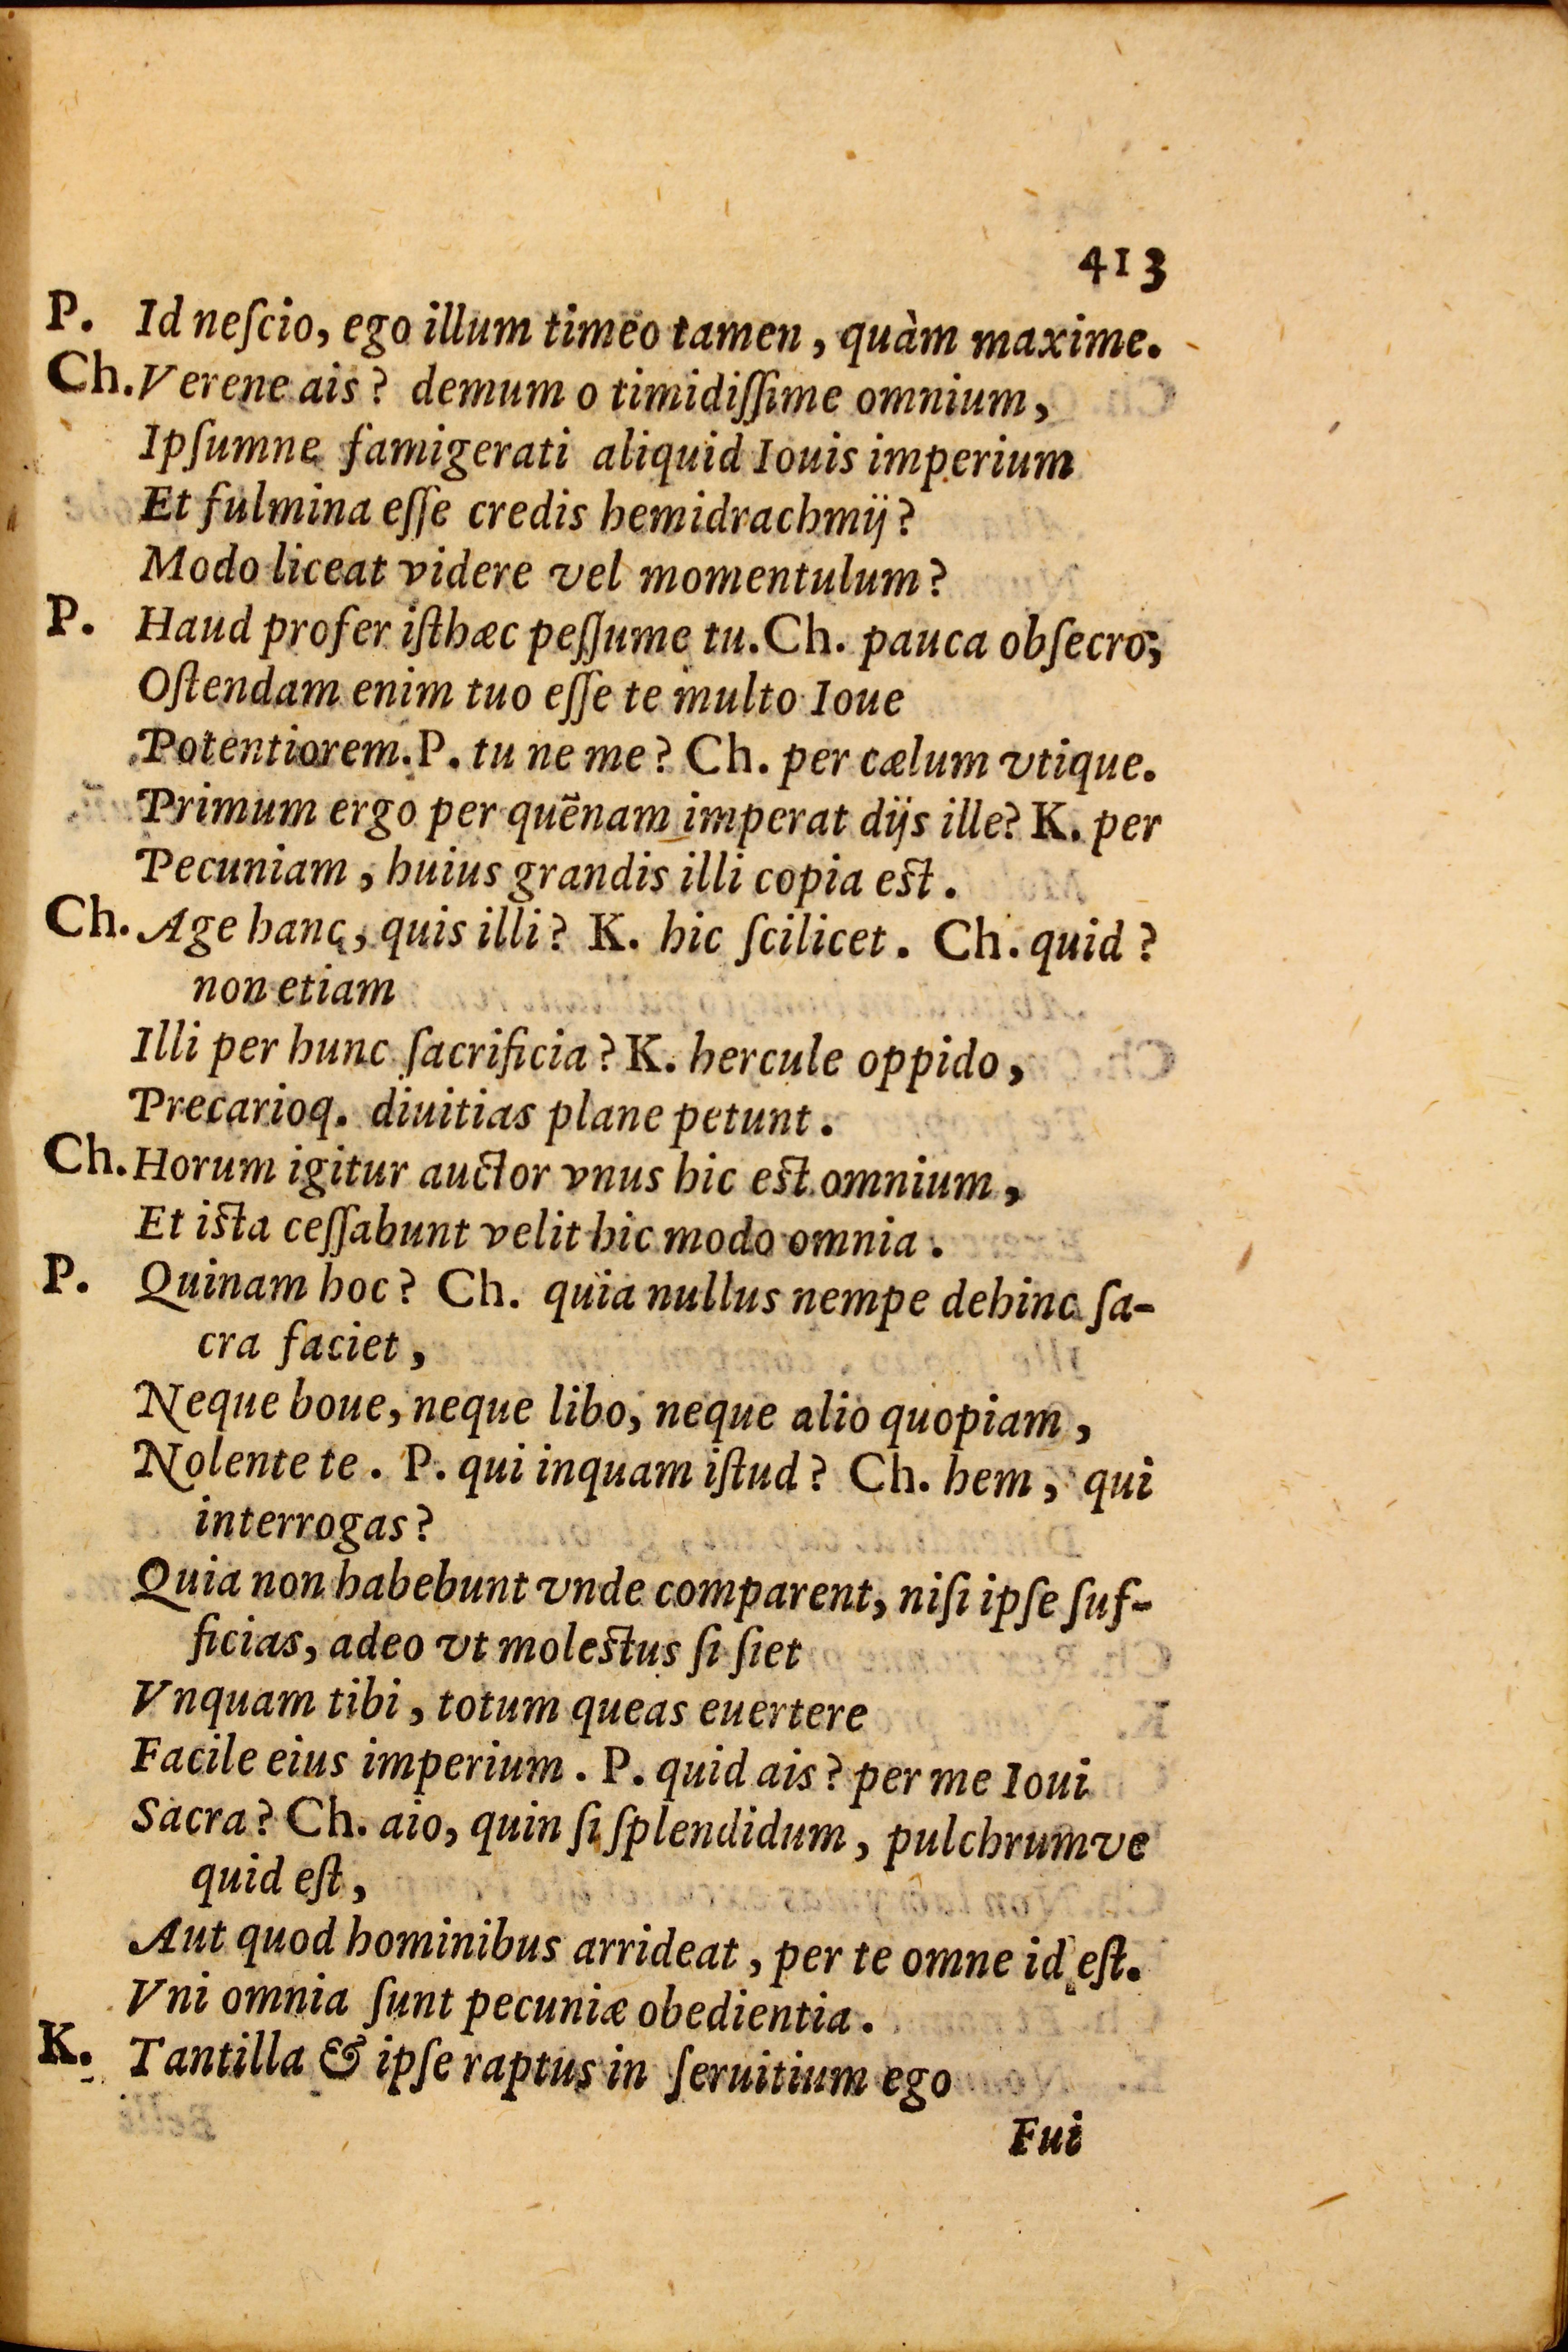 413
P. Id neſcio, ego illum timeo tamen, quàm maxime.
Ch. Verene ais? demum o timidiſſime omnium,
Ipſumne famigerati aliquid Iouis imperium
Et fulmina eſſe credis hemidrachmij?
Modo liceat videre vel momentulum?
P. Haud profer iſthæc peſſume tu. Ch. pauca obſecro;
Oſtendam enim tuo eſſe te multo Ioue
Potentiorem. P. tu ne me? Ch. per cælum vtique.
Primum ergo per quẽnam imperat dijs ille? K. per
Pecuniam, huius grandis illi copia eſt.
Ch. Age hanc, quis illi? K. hic ſcilicet. Ch. quid?
non etiam
Illi per hunc ſacrificia? K. hercule oppido,
Precarioq. diuitias plane petunt.
Ch. Horum igitur auctor vnus hic eſt omnium,
Et iſta ceſſabunt velit hic modo omnia.
P. Quinam hoc? Ch. quia nullus nempe dehinc ſa-
cra faciet,
Neque boue, neque libo, neque alio quopiam,
Nolente te. P. qui inquam iſtud? Ch. hem, qui
interrogas?
Quia non habebunt vnde comparent, niſi ipſe ſuf-
ficias, adeo vt moleſtus ſi ſiet
Vnquam tibi, totum queas euertere
Facile eius imperium. P. quid ais? per me Ioui
Sacra? Ch. aio, quin ſi ſplendidum, pulchrumve
quid eſt,
Aut quod hominibus arrideat, per te omne id eſt.
Vni omnia ſunt pecuniæ obedientia.
K. Tantilla & ipſe raptus in ſeruitium ego
Fui